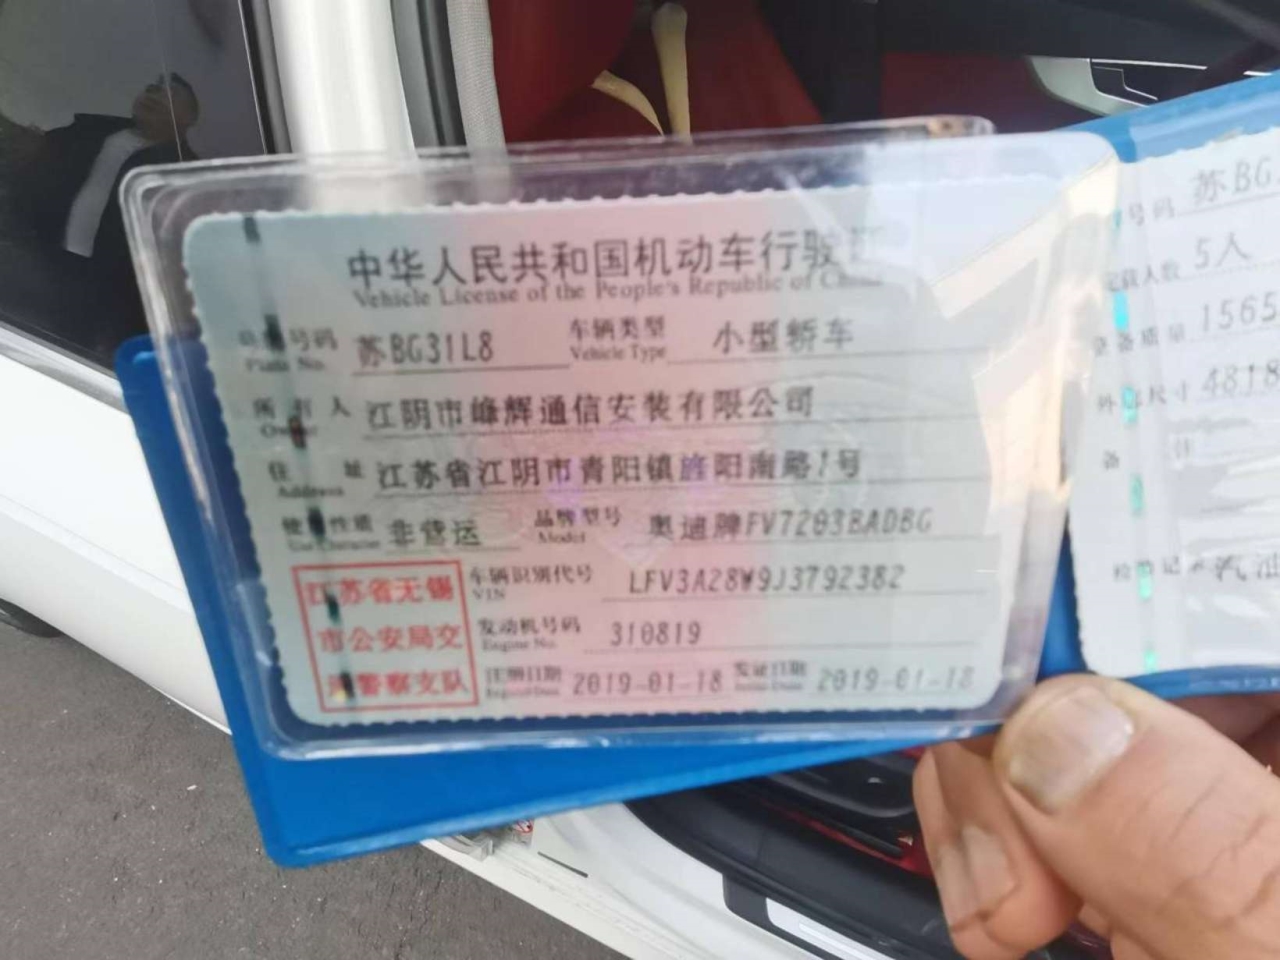 中华人民共和国机动车行驶证
Vehicle License of the People's Republic of China
号码 苏BG31L8 车辆类型 小型轿车
Plate No. Vehicle Type
所有人 江阴市峰辉通信安装有限公司
Owner
住址 江苏省江阴市青阳镇旌阳南路1号
Address
使用性质 非营运 品牌型号 奥迪牌FV7203BADBG
Use Character Model
江苏省无锡
市公安局交
警察支队
车辆识别代号 LFV3A28W9J3792382
VIN
发动机号码 310819
Engine No.
注册日期 2019-01-18 发证日期 2019-01-18
号码 苏BG
载人数 5人
备质量 1565
外 尺寸 4818
备 注
检 记 汽油